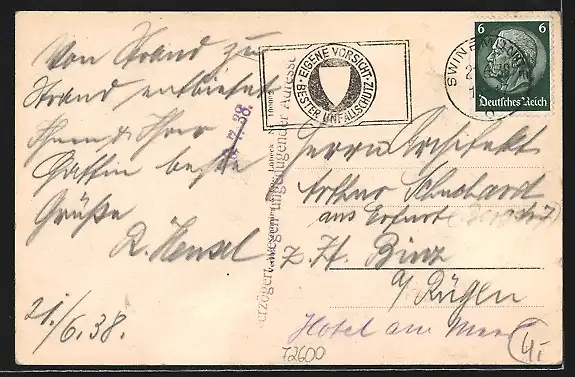 Von Strand zu
Strand entbietet
Ihnen & Ihrer
Gattin beste
Grüße
R. Hensel
21./6.38.
EIGENE VORSICHT
BESTER UNFALLSCHUTZ
7.38.
Verzögert wegen ungenügender Adresse
SWINEMÜNDE
6 6
Deutsches Reich
Herrn Architekt
Arthur Schuchardt
aus Erfurt
z. Zt. Binz
a/ Rügen
Hotel am Meer
72600